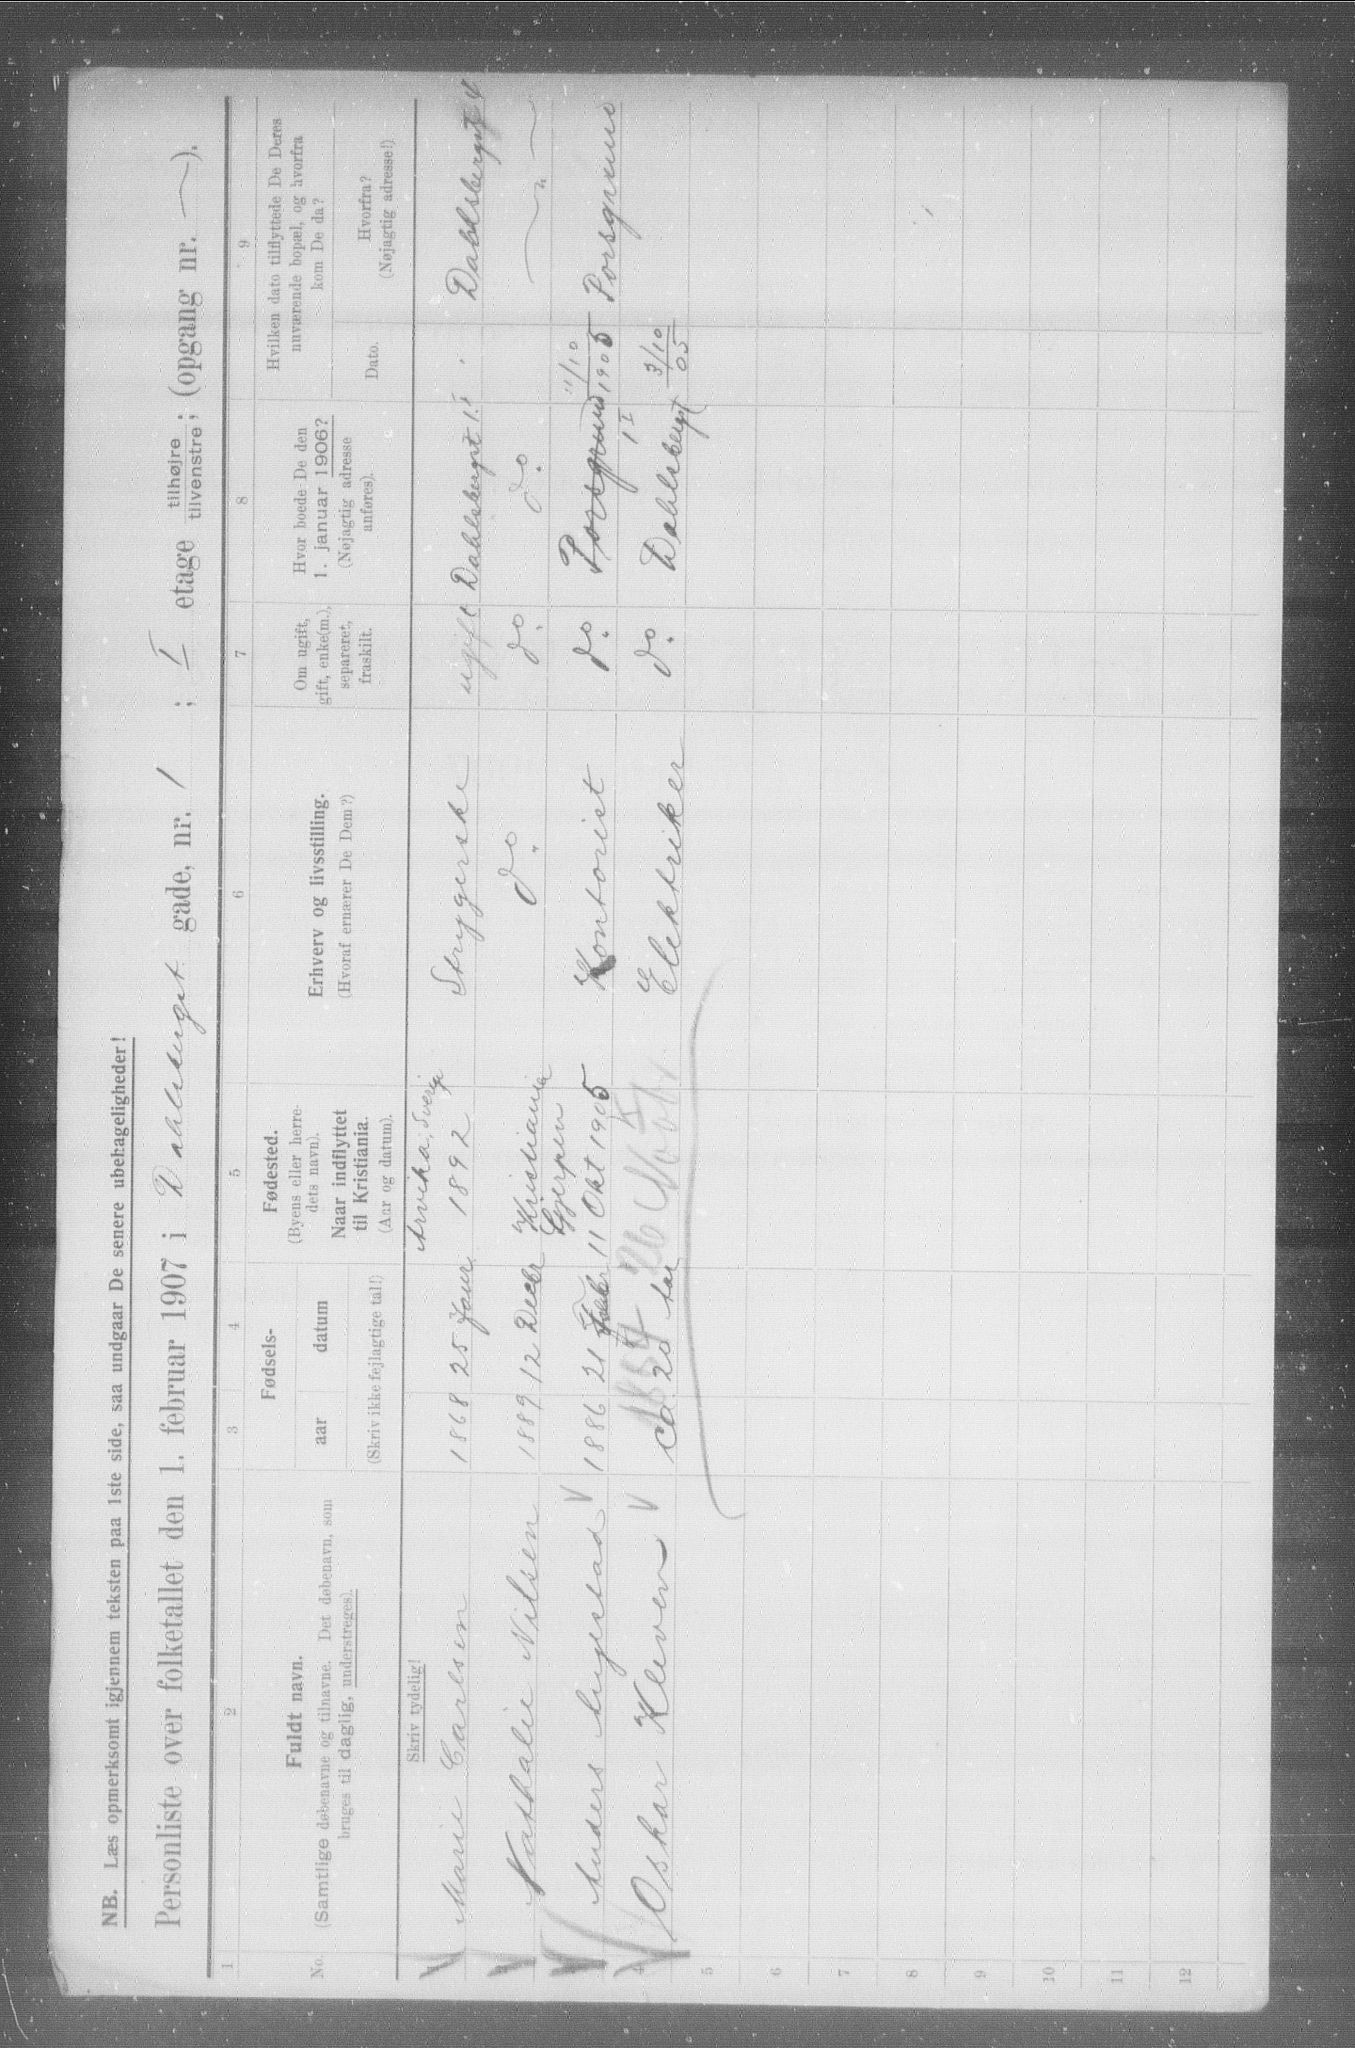 NB. Læs opmerksomt igjennem teksten paa 1ste side, saa undgaar De senere ubehageligheder!
Personliste over folketallet den 1. februar 1907 i Dahlsbergst. gade, nr. 1 ; I etage tilhøjre tilvenstre ; (opgang nr. — ).
1 2 3 4 5 6 7 8 9
No.
Fuldt navn.
(Samtlige døbenavne og tilnavne. Det døbenavn, som
bruges til daglig, understreges).
Fødsels-
aar datum
(Skriv ikke fejlagtige tal!)
Fødested.
(Byens eller herre-
dets navn).
Naar indflyttet
til Kristiania.
(Aar og datum).
Erhverv og livsstilling.
(Hvoraf ernærer De Dem?)
Om ugift,
gift, enke(m.),
separeret,
fraskilt.
Hvor boede De den
1. januar 1906?
(Nøjagtig adresse
anføres).
Hvilken dato tilflyttede De Deres
nuværende bopæl, og hvorfra
kom De da?
Dato.
Hvorfra?
(Nøjagtig adresse!)
Skriv tydelig!
Arvika, Sverige
1 Marie Carlsen 1868 25 Janr. 1892 Strygerske ugift Dahlsbergst 1 I Dahlsbergst
2 Nathalie Nilsen 1889 12 Decbr Kristiania do. do. do. — " —
Gjerpen
3 Anders 1886 21 Febr 11 Okt 1905 Kontorist do. Porsgrund 11/10 1905 Porsgrund
4 Oskar Kleven ca. 20 aar Elektriker do. Dahlsbergst 1 I 3/10 05
5
6
7
8
9
10
11
12